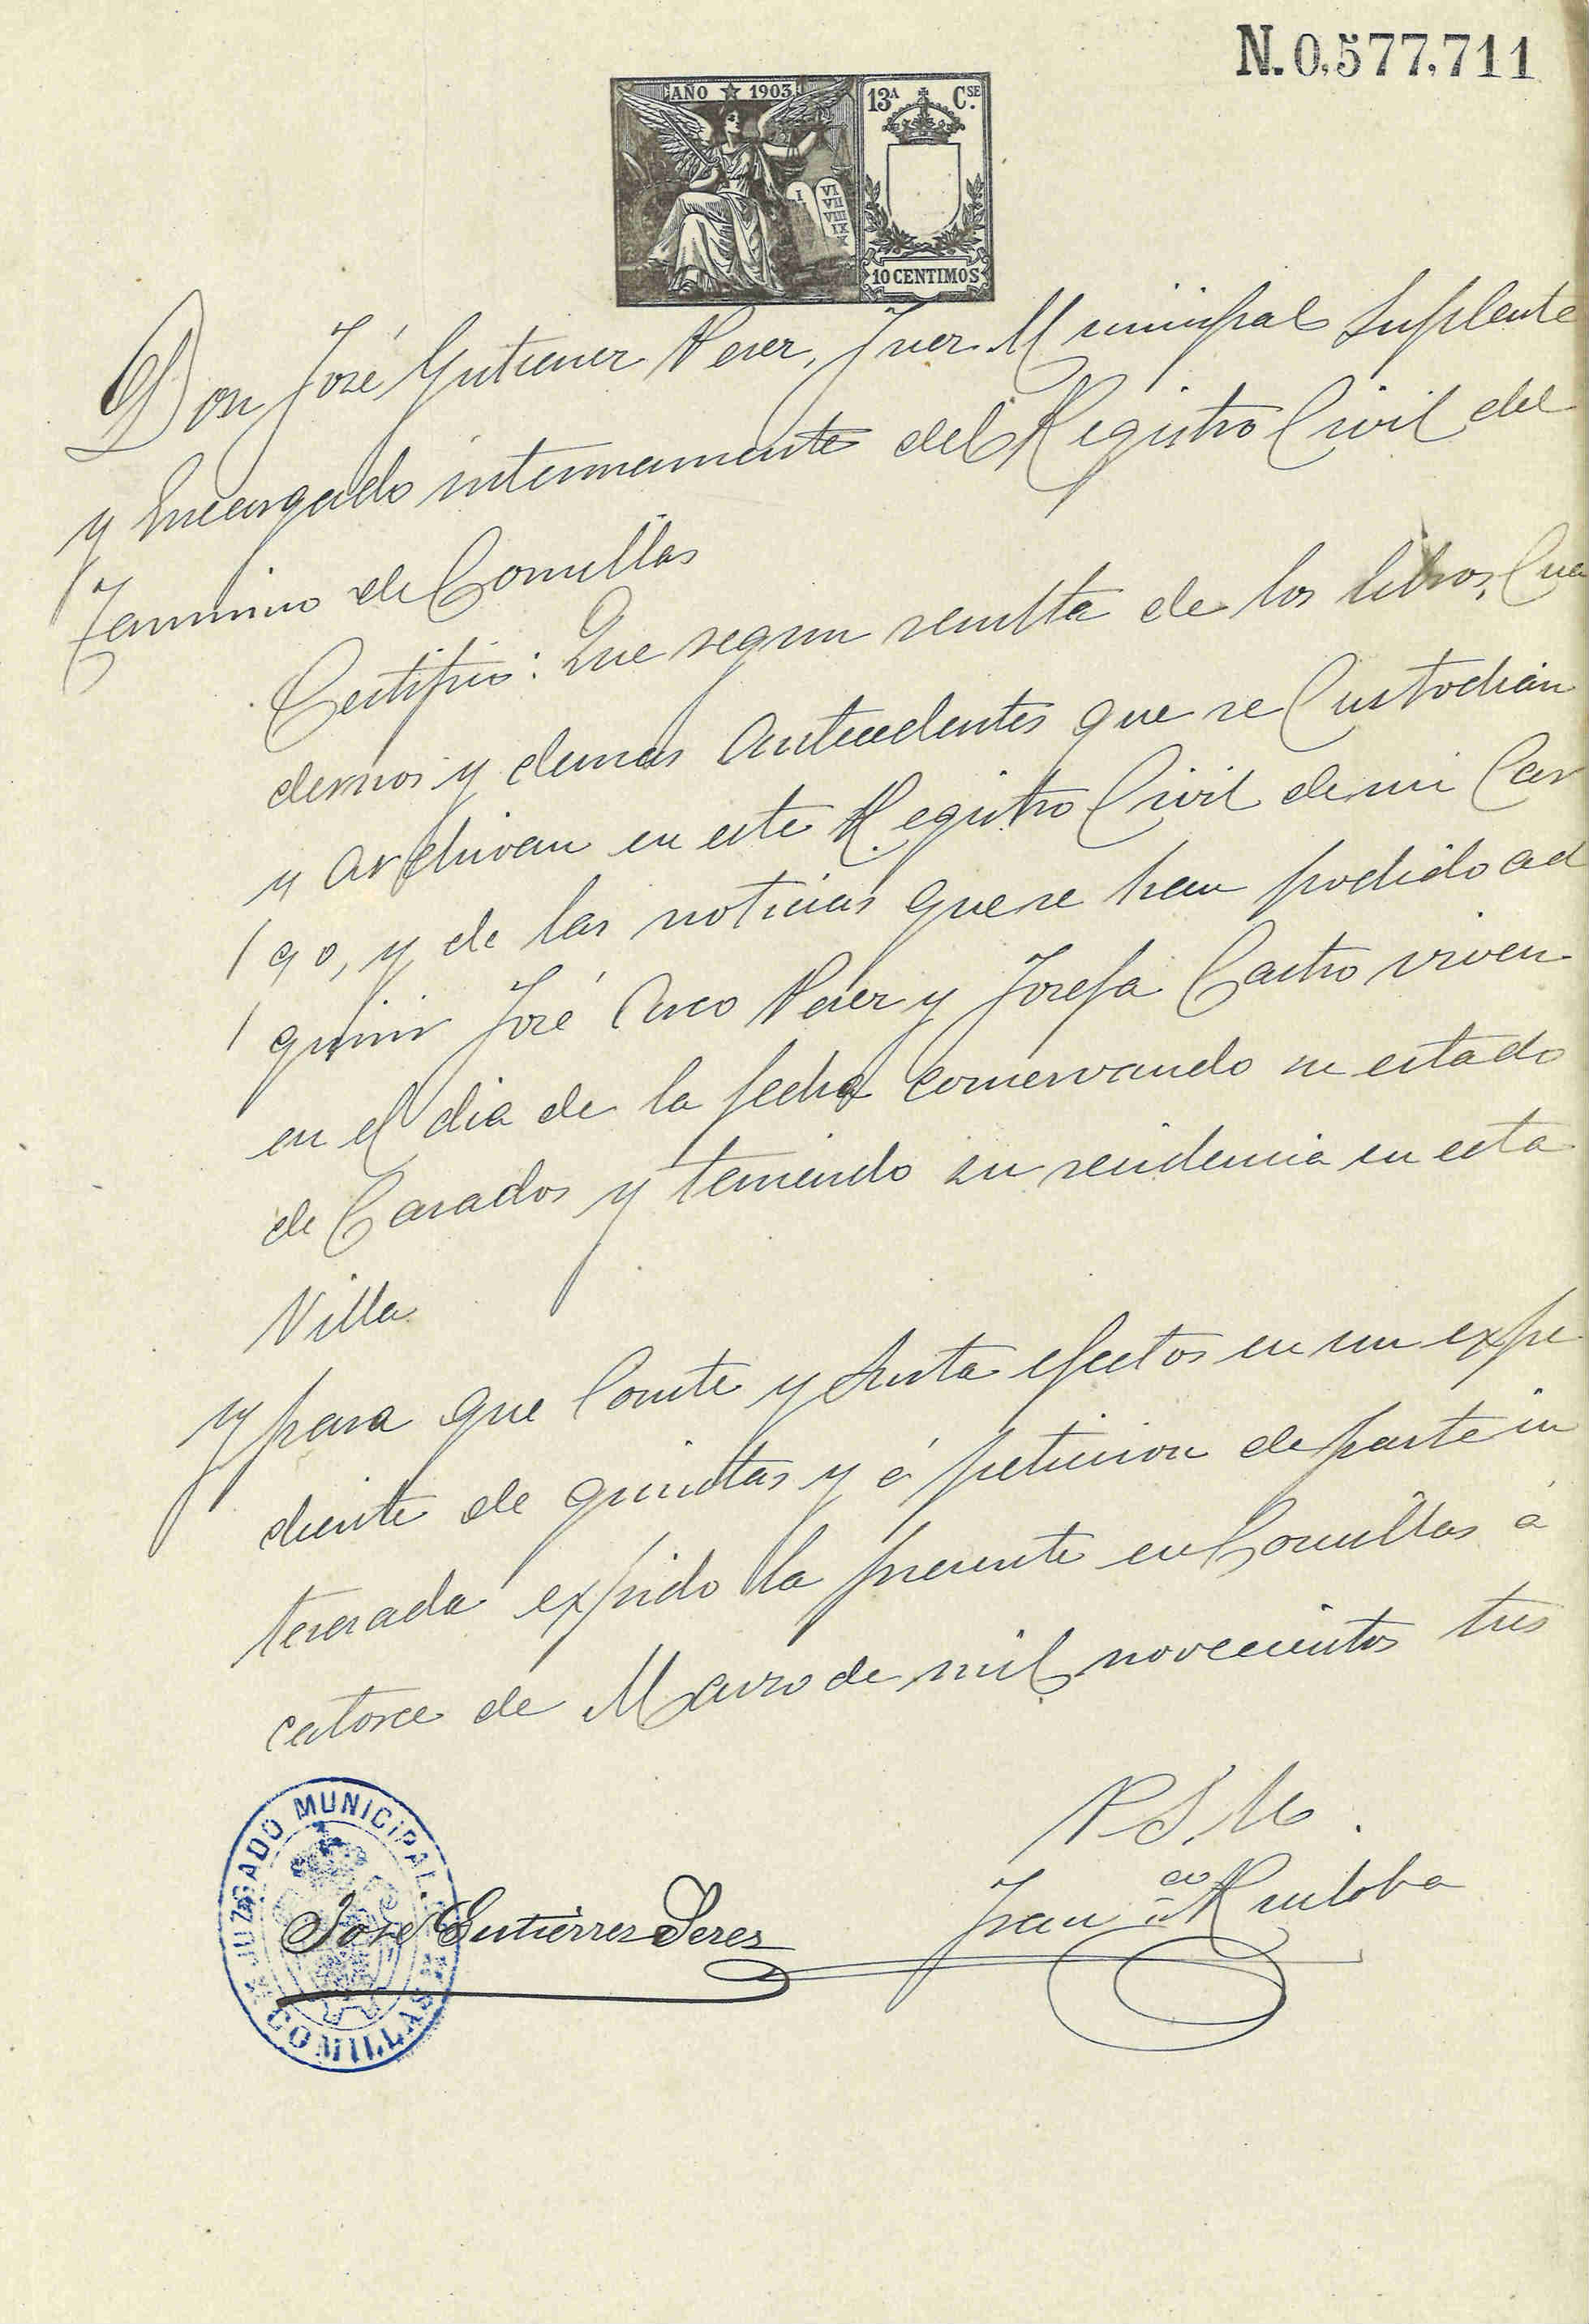 N. 0,577,711
AÑO 1903
13ª Cse.
I VI VII VIII IX X
10 CENTIMOS
Don José Gutierrez Perez, Juez Municipal Suplente
y Encargado interinamente del Registro Civil del
Termino de Comillas
Certifico: Que segun resulta de los libros, Cua
dernos y demas Antecedentes que se Custodian
y Archivan en este Registro Civil de mi Car
go, y de las noticias que se han podido ad
quirir José Arco Perez y Josefa Castro viven
en el dia de la fecha conservando su estado
de Casados y teniendo su residencia en esta
Villa
y para que Conste y Surta efectos en un expe
diente de quintas y á peticion de parte in
teresada expido la presente en Comillas á
catorce de Marzo de mil novecientos tres
P. S. M.
Franco Ruiloba
José Gutiérrez Perez
JUZGADO MUNICIPAL
COMILLAS